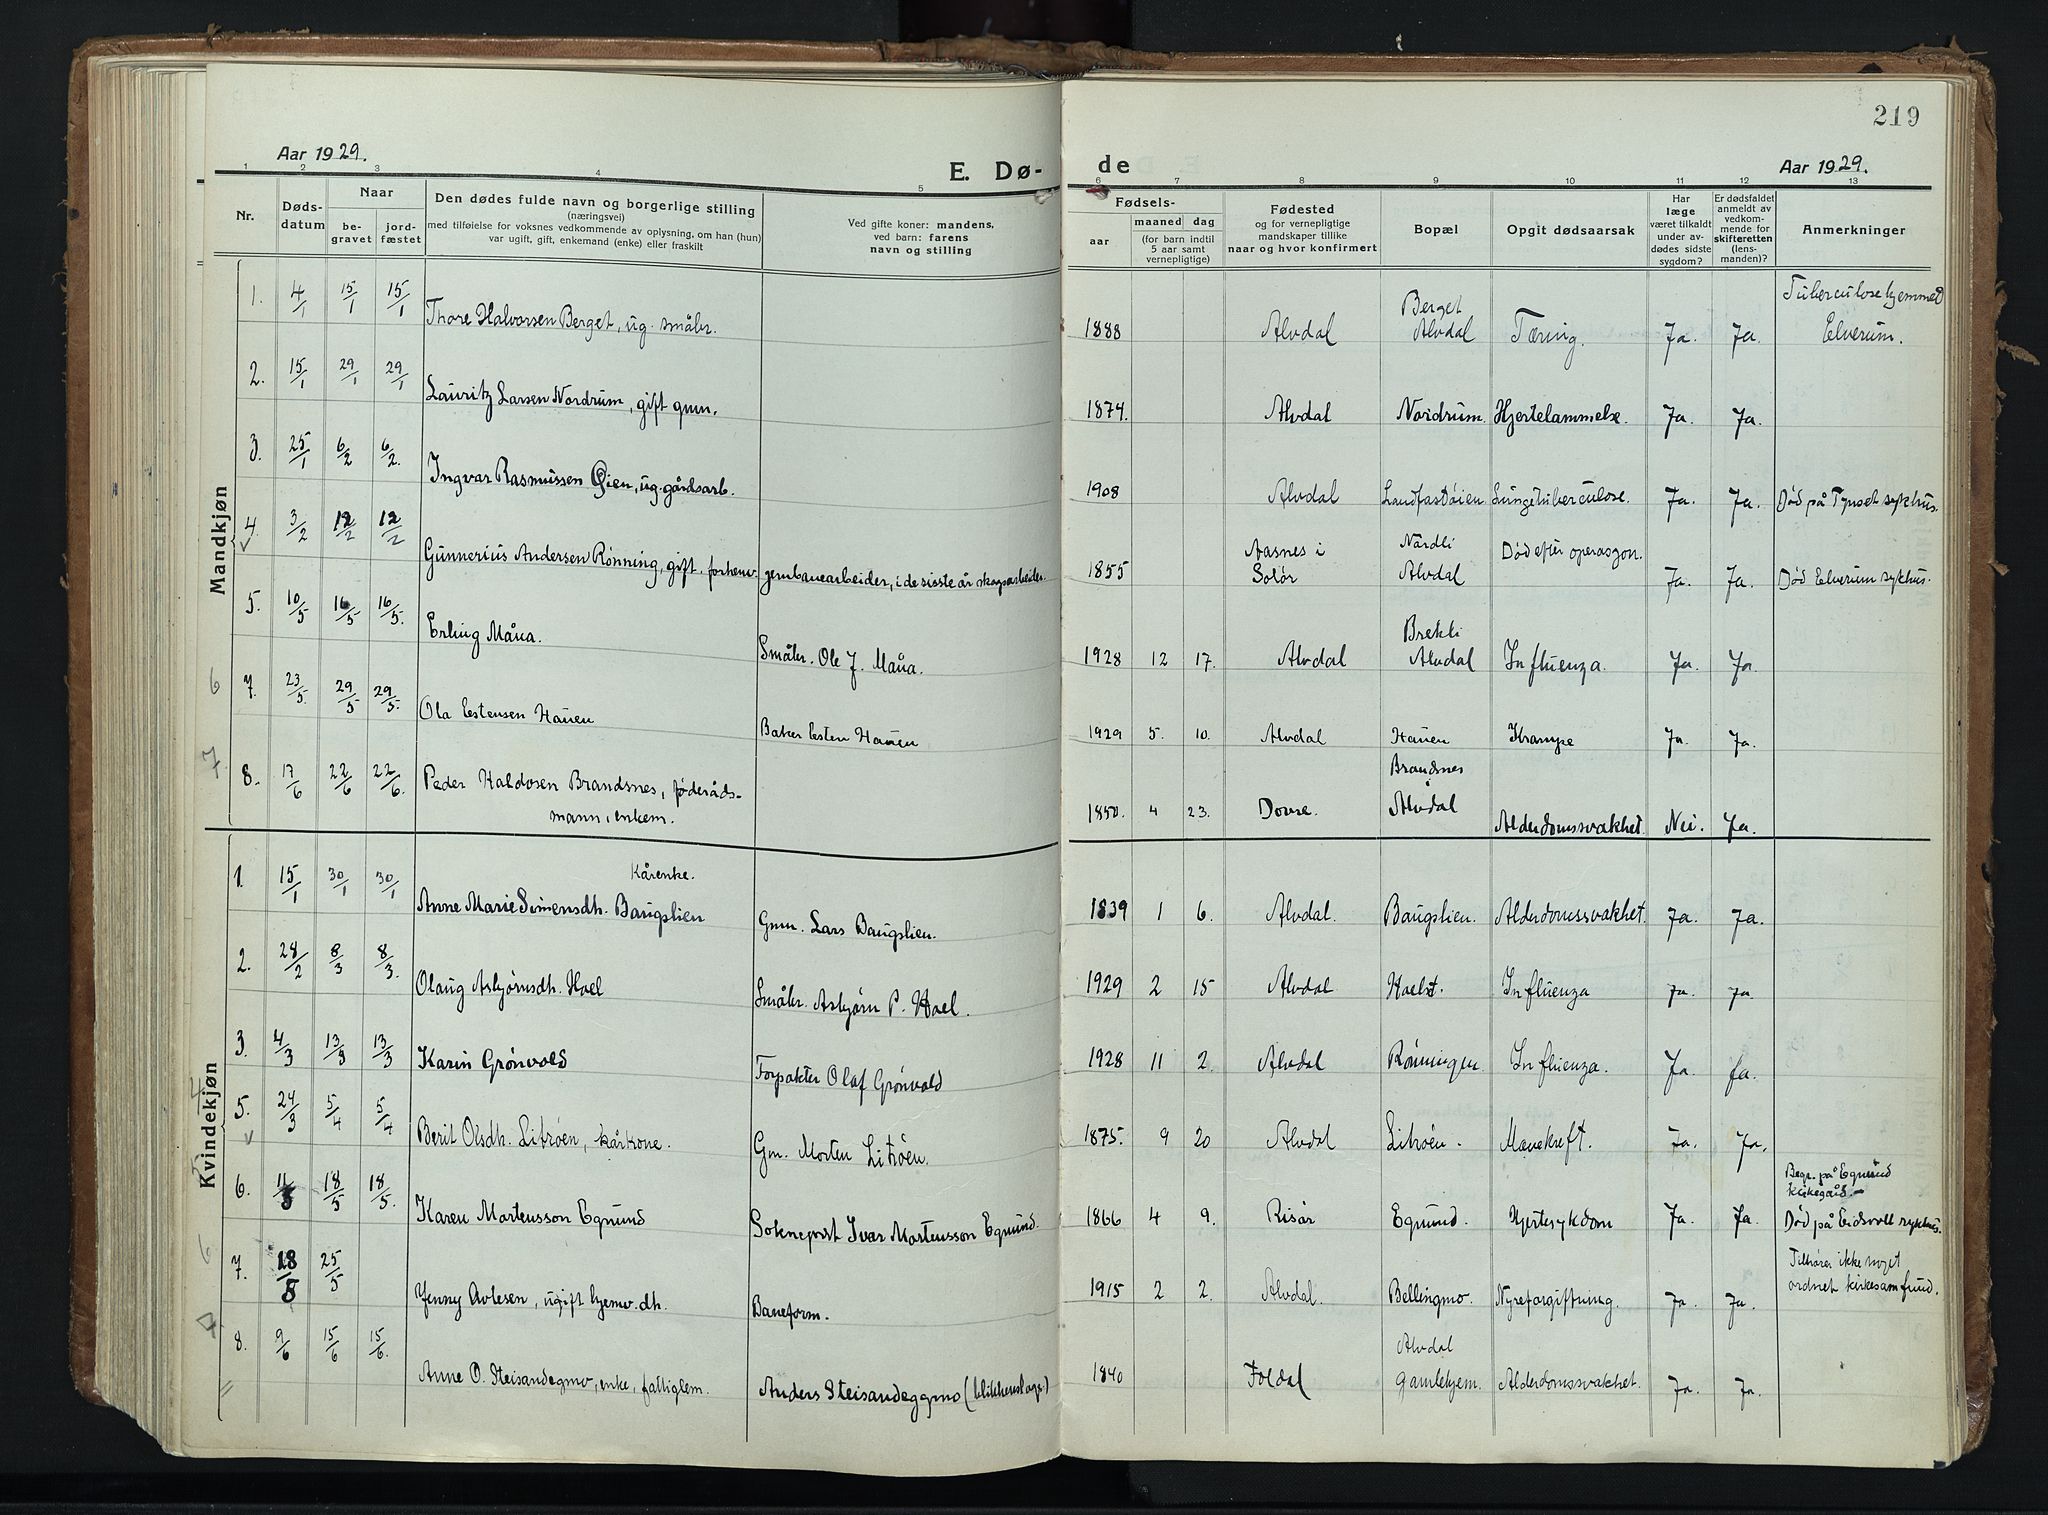 219
Aar 1929.
E. Dø-
de
Aar 1929.
1 2 3 4 5 6 7 8 9 10 11 12 13
Nr.
Døds-
datum
Naar
be-
gravet
jord-
fæstet
Den dødes fulde navn og borgerlige stilling
(næringsvei)
med tilføielse for voksnes vedkommende av oplysning, om han (hun)
var ugift, gift, enkemand (enke) eller fraskilt
Ved gifte koner: mandens,
ved barn: farens
navn og stilling
Fødsels-
aar
maaned
dag
(for barn indtil
5 aar samt
vernepligtige)
Fødested
og for vernepligtige
mandskaper tillike
naar og hvor konfirmert
Bopæl
Opgit dødsaarsak
Har
læge
været tilkaldt
under av-
dødes sidste
sygdom?
Er dødsfaldet
anmeldt av
vedkom-
mende for
skifteretten
(lens-
manden)?
Anmerkninger
Mandkjøn
1. 4/1 15/1 15/1 Thore Halvorsen Berget, ug. småbr. 1888 Alvdal Berget Alvdal Tæring. Ja. Ja. Tuberculosehjemmet Elverum.
2. 15/1 29/1 29/1 Lauritz Larsen Nordrum, gift gmn. 1874. Alvdal Nordrum. Hjertelammelse. Ja. Ja.
3. 25/1 6/2 6/2. Ingvar Rasmussen Øien, ug. gårdsarb. 1908 Alvdal Landfastøien Lungetuberculose. Ja. Ja. Død på Tynset sykhus.
4. 3/2 12/2 12/2 Gunnerius Andersen Rønning, gift. forhenv. jernbanearbeider, i de sisste år skogsarbeider. 1855 Aasnes i Solør Nardli Alvdal Død efter operasjon. Ja. Ja. Død Elverum sykhus.
5. 10/5 16/5 16/5. Erling Måna. Småbr. Ole J. Måna. 1928 12 17. Alvdal Brekli Alvdal Influenza. Ja. Ja.
6
7. 23/5. 29/5 29/5. Ola Estensen Hauen Baker Esten Hauen 1929 5. 10. Alvdal Hauen Krampe Ja. Ja.
7
8. 17/6 22/6 22/6. Peder Haldosen Brandsnes, føderåds-
mann, enkem. 1850. 4 23. Dovre. Brandsnes Alvdal Alderdomssvakhet. Nei. Ja.
Kvindekjøn
1. 15/1 30/1 30/1 Kårenke.
Anne Marie Simensdh. Baugslien Gmn. Lars Baugslien. 1839 1 6. Alvdal. Baugslien. Alderdomssvakhet. Ja. Ja.
2. 28/2 8/3 8/3. Olaug Asbjørnsdh. Hoel Småbr. Asbjørn P. Hoel. 1929 2 15 Alvdal Influenza Ja. Ja.
3. 4/3 13/3 13/3 Karin Grønvold Forpakter Olaf Grønvold 1928 11 2. Alvdal Rønningen Influenza. Ja. Ja.
5. 24/3 5/4 5/4 Berit Olsdh. Litrøen, kårkone. Gm. Morten Litrøen. 1875. 9 20 Alvdal Litrøen. Mavekreft. Ja. Ja.
6. 11/5 18/5 18/5. Karen Mortensson Egnund Sokneprst Ivar Mortensson Egnund. 1866 4 9. Risør Egnund. Hjertesykdom Ja. Ja. Begr. på Egnund kirkegård.– Død på Eidsvoll sykhus.
6
7. 18/5 25/5 Jenny Avlesen, ugift hjemv. dh. Baneform. 1915 2 2. Alvdal. Bellingmo. Nyreforgiftning. Ja. Ja. Tilhører ikke noget ordnet kirkesamfund.
8. 9/6 15/6 15/6. Anne O. Steisandegmo, enke, fattiglem. Anders Steisandeggmo (blikkenslager) 1840 Foldal Alvdal gamlehjem. Alderdomssvakhet. Ja. Ja.